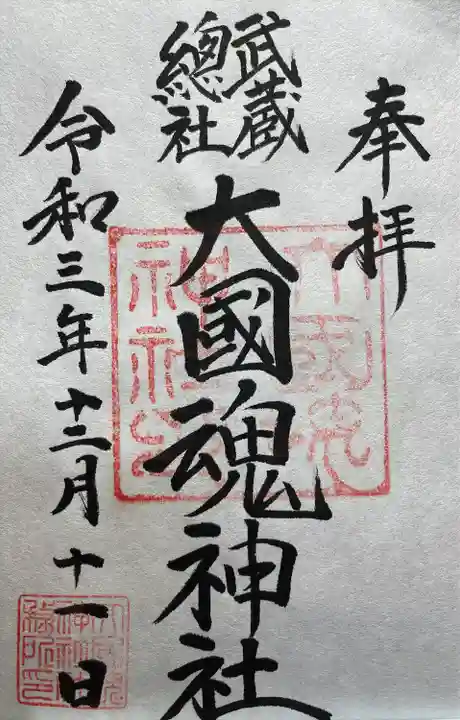 奉拝
武蔵
總社
大國魂神社
令和三年十二月十一日